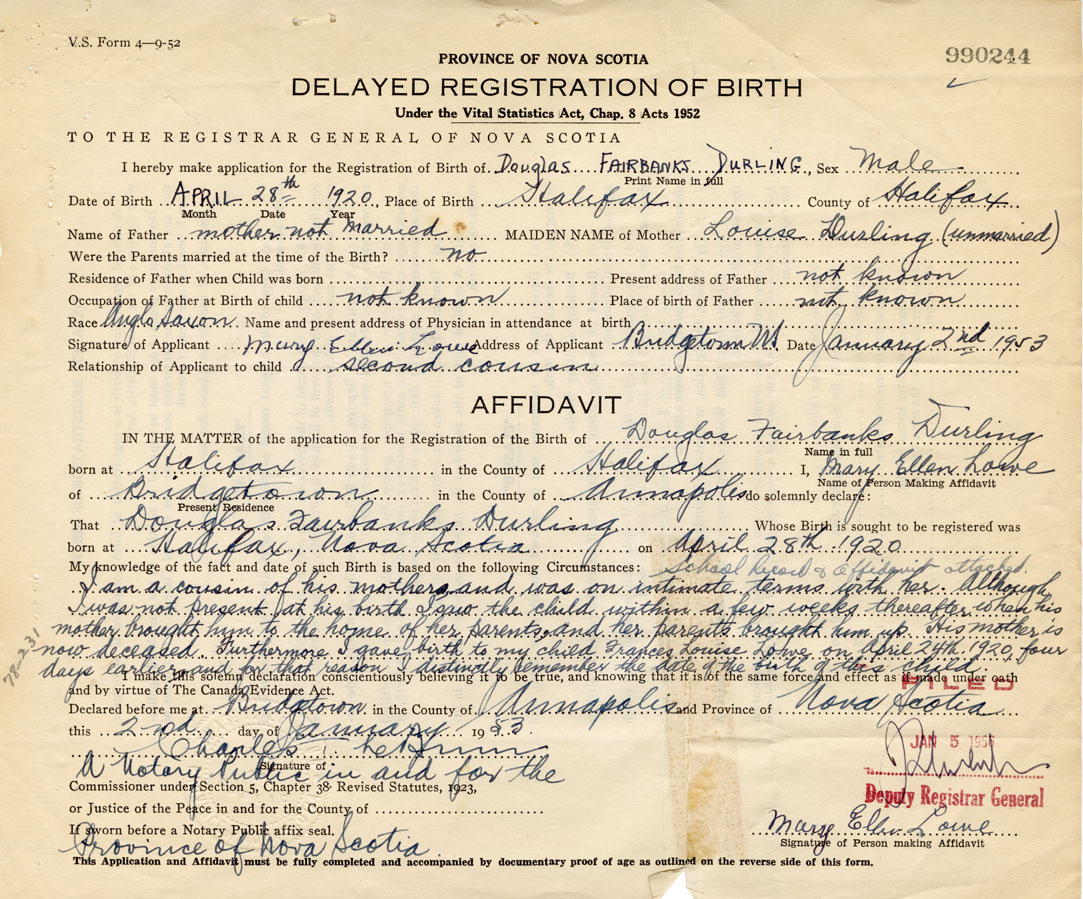 V.S. Form 4—9-52
990244
PROVINCE OF NOVA SCOTIA
DELAYED REGISTRATION OF BIRTH
Under the Vital Statistics Act, Chap. 8 Acts 1952
TO THE REGISTRAR GENERAL OF NOVA SCOTIA
I hereby make application for the Registration of Birth of Douglas FAIRBANKS DURLING, Sex Male
Print Name in full
Date of Birth APRIL 28th 1920 Place of Birth Halifax County of Halifax
Month Date Year
Name of Father mother not married MAIDEN NAME of Mother Louise Durling (unmarried)
Were the Parents married at the time of the Birth? no
Residence of Father when Child was born Present address of Father not known
Occupation of Father at Birth of child not known Place of birth of Father not known
Race Anglo Saxon Name and present address of Physician in attendance at birth
Signature of Applicant Mary Ellen Lowe Address of Applicant Bridgetown Date January 2nd 1953
Relationship of Applicant to child second cousin
AFFIDAVIT
IN THE MATTER of the application for the Registration of the Birth of Douglas Fairbanks Durling
Name in full
born at Halifax in the County of Halifax I, Mary Ellen Lowe
Name of Person Making Affidavit
of Bridgetown in the County of Annapolis do solemnly declare:
Present Residence
That Douglas Fairbanks Durling Whose Birth is sought to be registered was
born at Halifax, Nova Scotia on April 28th 1920
My knowledge of the fact and date of such Birth is based on the following Circumstances: School Record & Affidavit attached.
I am a cousin of his mothers and was on intimate terms with her. Although
I was not present at his birth I saw the child within a few weeks thereafter when his
mother brought him to the home of her parents, and her parents brought him up. His mother is
now deceased. Furthermore I gave birth to my child Frances Louise Lowe on April 24th 1920, four
days earlier and for that reason I distinctly remember the date of the birth of this child
78-231
I make this solemn declaration conscientiously believing it to be true, and knowing that it is of the same force and effect as if made under oath
and by virtue of The Canada Evidence Act.
FILED
Declared before me at Bridgetown in the County of Annapolis and Province of Nova Scotia
this 2nd day of January 1953
JAN 5 1956
Charles
Signature of
A Notary Public in and for the
Commissioner under Section 5, Chapter 38 Revised Statutes, 1923,
Deputy Registrar General
or Justice of the Peace in and for the County of
If sworn before a Notary Public affix seal.
Mary Ellen Lowe
Signature of Person making Affidavit
Province of Nova Scotia
This Application and Affidavit must be fully completed and accompanied by documentary proof of age as outlined on the reverse side of this form.